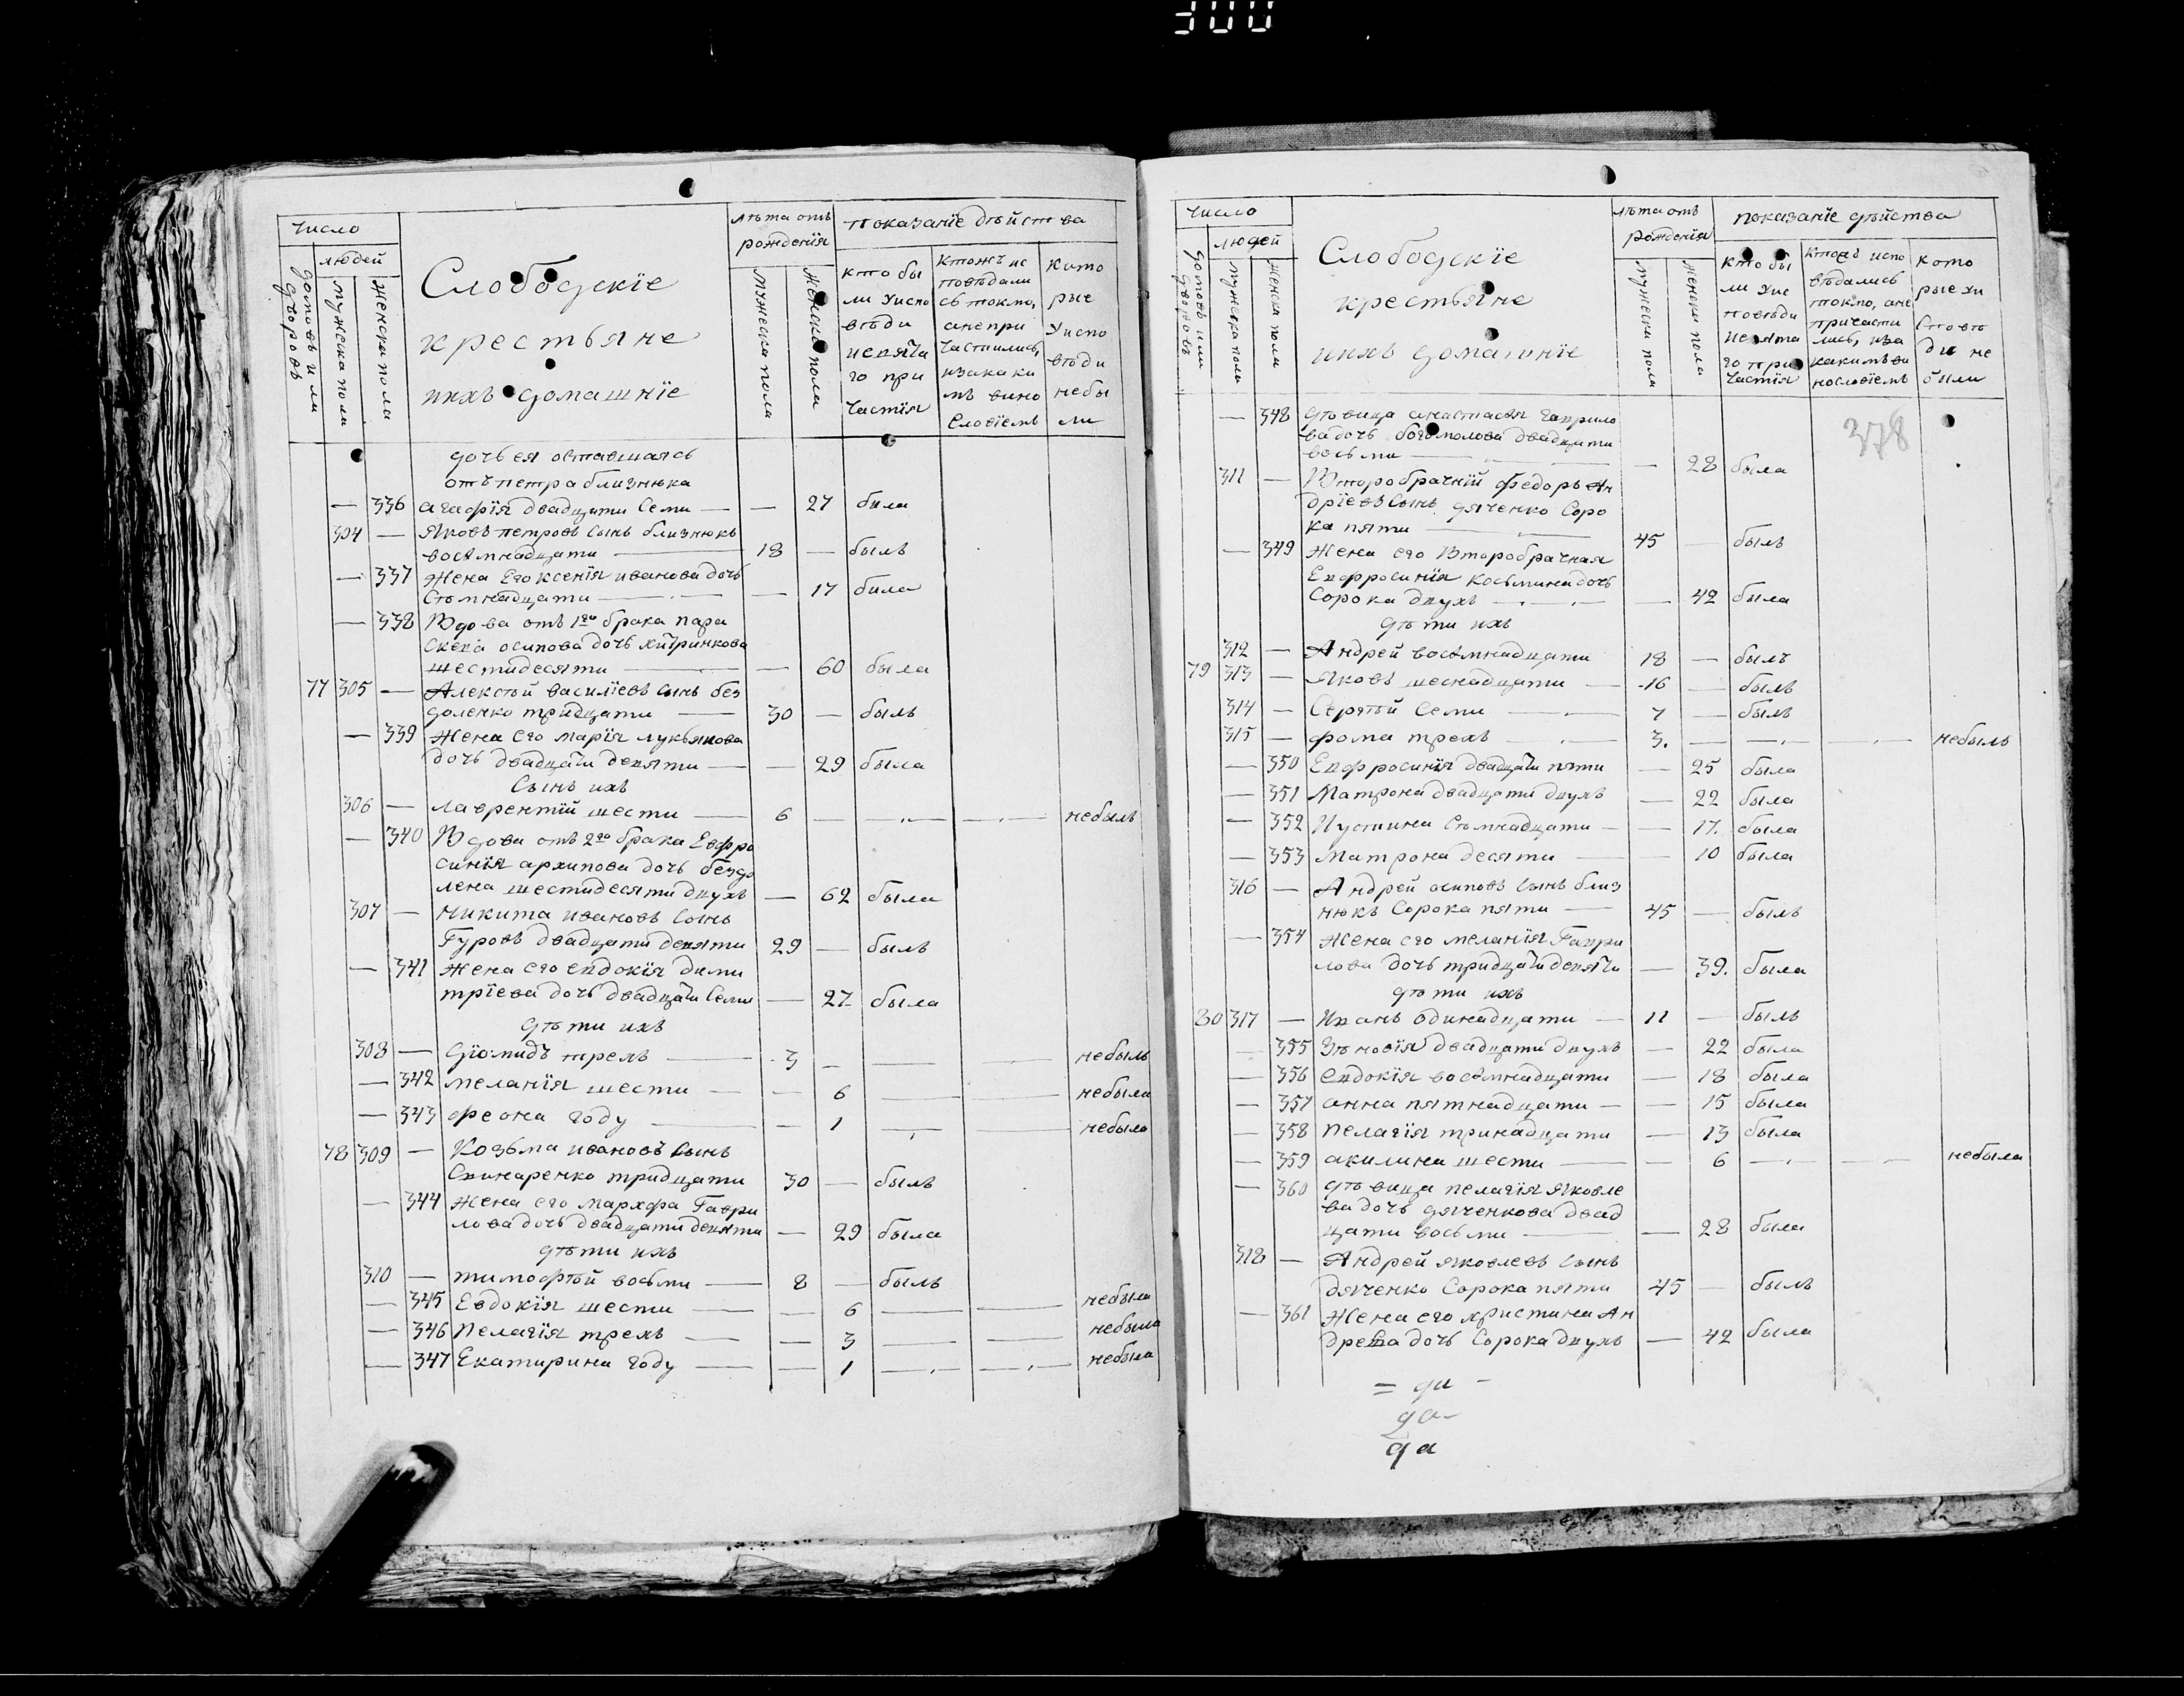 300
Число
людей
домовъ или дворовъ
мужеска пола
женска пола
Слободскіе
крестьяне
ихъ домашніе
лѣта отъ
рожденія
мужеска пола
женска пола
показаніе дѣйства
кто бы
ли уиспо
вѣди
исвята
го при
частія
ктожъ ис
повѣдали
сь токмо,
анепри
частились,
изакаки
мъ вино
словіемъ
кото
рые
уиспо
вѣди
небы
ли
дочь ея оставшаясь
отъ петра близнюка
— 336 агафія двадцати семи — — 27 была
304 — Яковъ петровъ сынъ близнюкъ
восѣмнадцати — 18 — былъ
— 337 жена его ксенія иванова дочь
сѣмнадцати — — 17 была
— 338 Вдова отъ 1го брака пара
скева осипова дочь
шестидесяти — — 60 была
77 305 — Алексѣй василіевъ сынъ без
доленко тридцати — 30 — былъ
— 339 жена его марія лукьянова
дочь двадцати девяти — — 29 была
Сынъ ихъ
306 — лаврентій шести — 6 — — — небылъ
— 340 Вдова отъ 2го брака Евфро
синія архипова дочь бездо
лена шестидесяти двухъ — 62 была
307 — никита ивановъ сынъ
Гуровъ двадцати девяти 29 — былъ
— 341 жена его евдокія дими
тріева дочь двадцати семи — 27 была
дѣти ихъ
308 — діомидъ трехъ — 3 — — — небылъ
— 342 меланія шести — — 6 — — небыла
— 343 феона году — — 1 — — небыла
78 309 — Козьма ивановъ сынъ
Свинаренко тридцати 30 — былъ
— 344 жена его мархфа Гаври
лова дочь двадцати девяти — 29 была
дѣти ихъ
310 — тимофѣй восьми — 8 — былъ
— 345 Евдокія шести — — 6 — — небыла
— 346 пелагія трехъ — — 3 — — небыла
— 347 Екатирина году — — 1 — — небыла
Число
людей
домовъ или дворовъ
мужеска пола
женска пола
Слободскіе
крестьяне
ихъ домашніе
лѣта отъ
рожденія
мужеска пола
женска пола
показаніе дѣйства
кто бы
ли уис
повѣди
исвята
го при
частія
ктожъ испо
вѣдались
токмо, ане
причасти
лись, иза
какимъ ви
нословіемъ
кото
рые уи
сповѣ
ди не
были
378
— 348 дѣвица анастасія гаврило
ва дочь богомолова двадцати
восьми — — 28 была
311 — Второбрачній федоръ ан
дріевъ сынъ дяченко соро
ка пяти — 45 — былъ
— 349 жена его второбрачная
Евфросинія косьмина дочь
сорока двухъ — — 42 была
дѣти ихъ
312 — Андрей восѣмнадцати 18 — былъ
79 313 — Яковъ шеснадцати — 16 — былъ
314 — Сергѣй семи — 7 — былъ
315 — фома трехъ — 3. — — — небылъ
— 350 Евфросинія двадцати пяти — 25 была
— 351 Матрона двадцати двухъ — 22 была
— 352 Иустина сѣмнадцати — — 17. была
— 353 матрона десяти — — 10 была
316 — Андрей осиповъ сынъ близ
нюкъ сорока пяти — 45 — былъ
— 354 жена его меланія Гаври
лова дочь тридцати девяти — 39. была
дѣти ихъ
80 317 — Иванъ одинадцати — 11 — былъ
— 355 Зѣновія двадцати двухъ — 22 была
— 356 евдокія восѣмнадцати — 18 была
— 357 анна пятнадцати — — 15 была
— 358 пелагія тринадцати — 13 была
— 359 акилина шести — — 6 — — небыла
— 360 дѣвица пелагія яковле
ва дочь дяченкова двад
цати восьми — — 28 была
318 — Андрей яковлевъ сынъ
дяченко сорока пяти 45 — былъ
— 361 жена его христина Ан
древа дочь сорока двухъ — 42 была
= да —
да
да